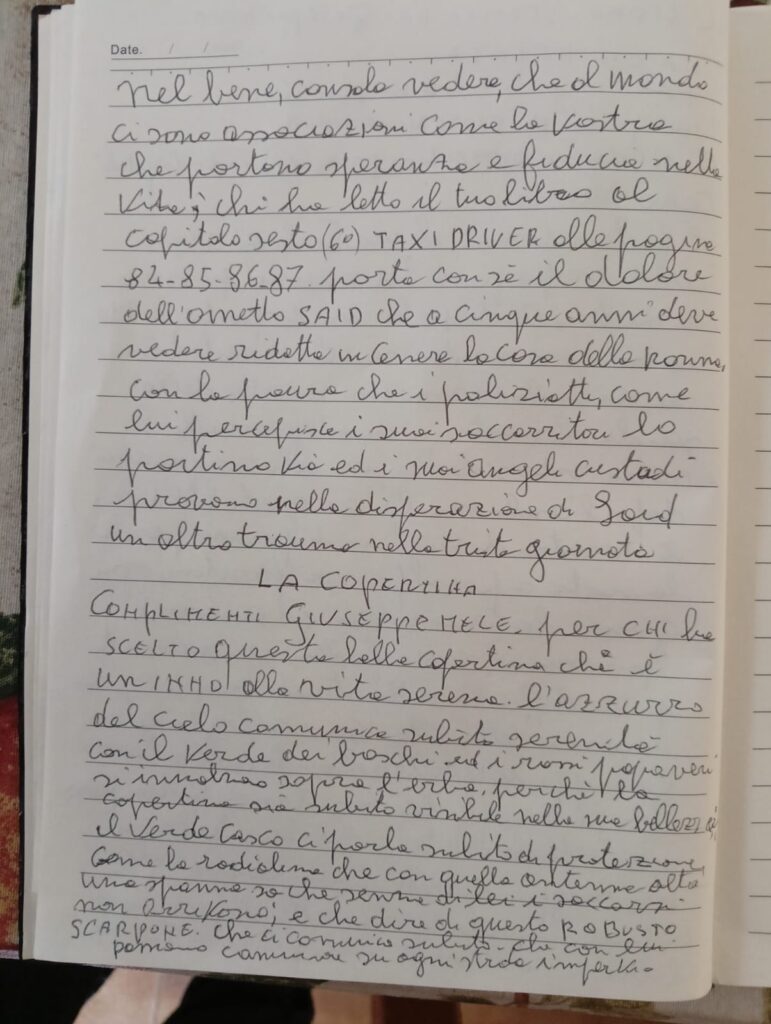 Date. / /
nel bene, consola vedere, che al mondo
ci sono associazioni come la vostra
che portono speranza e fiducia nella
vita; chi ha letto il tuo libro al
capitolo sesto (6°) TAXI DRIVER alle pagine
84-85-86-87. porta con sè il dolore
dell'ometto SAID che a cinque anni deve
vedere ridotta in cenere la casa della nonna,
con la paura che i poliziotti, come
lui percepisce i suoi soccorritori lo
portino via ed i suoi angeli custodi
provano nella disperazione di Said
un altro trauma nella triste giornata
LA COPERTINA
COMPLIMENTI GIUSEPPE MELE. per CHI ha
SCELTO questa bella copertina chè è
UN INNO alla vita serena. l'azzurro
del cielo comunica subito serenità
con il verde dei boschi ed i rossi papaveri
si innalzao sopra l'erba, perchè la
copertina sia subito visibile nella sua bellezza,
il verde casco ci parla subito di protezione,
come la radiolina che con quella antenna alta
una spanna so che senza di lei i soccorsi
non arrivano; e che dire di questo ROBUSTO
SCARPONE. che ci comunica subito. che con lui
possiamo camminare su ogni strada impervia.